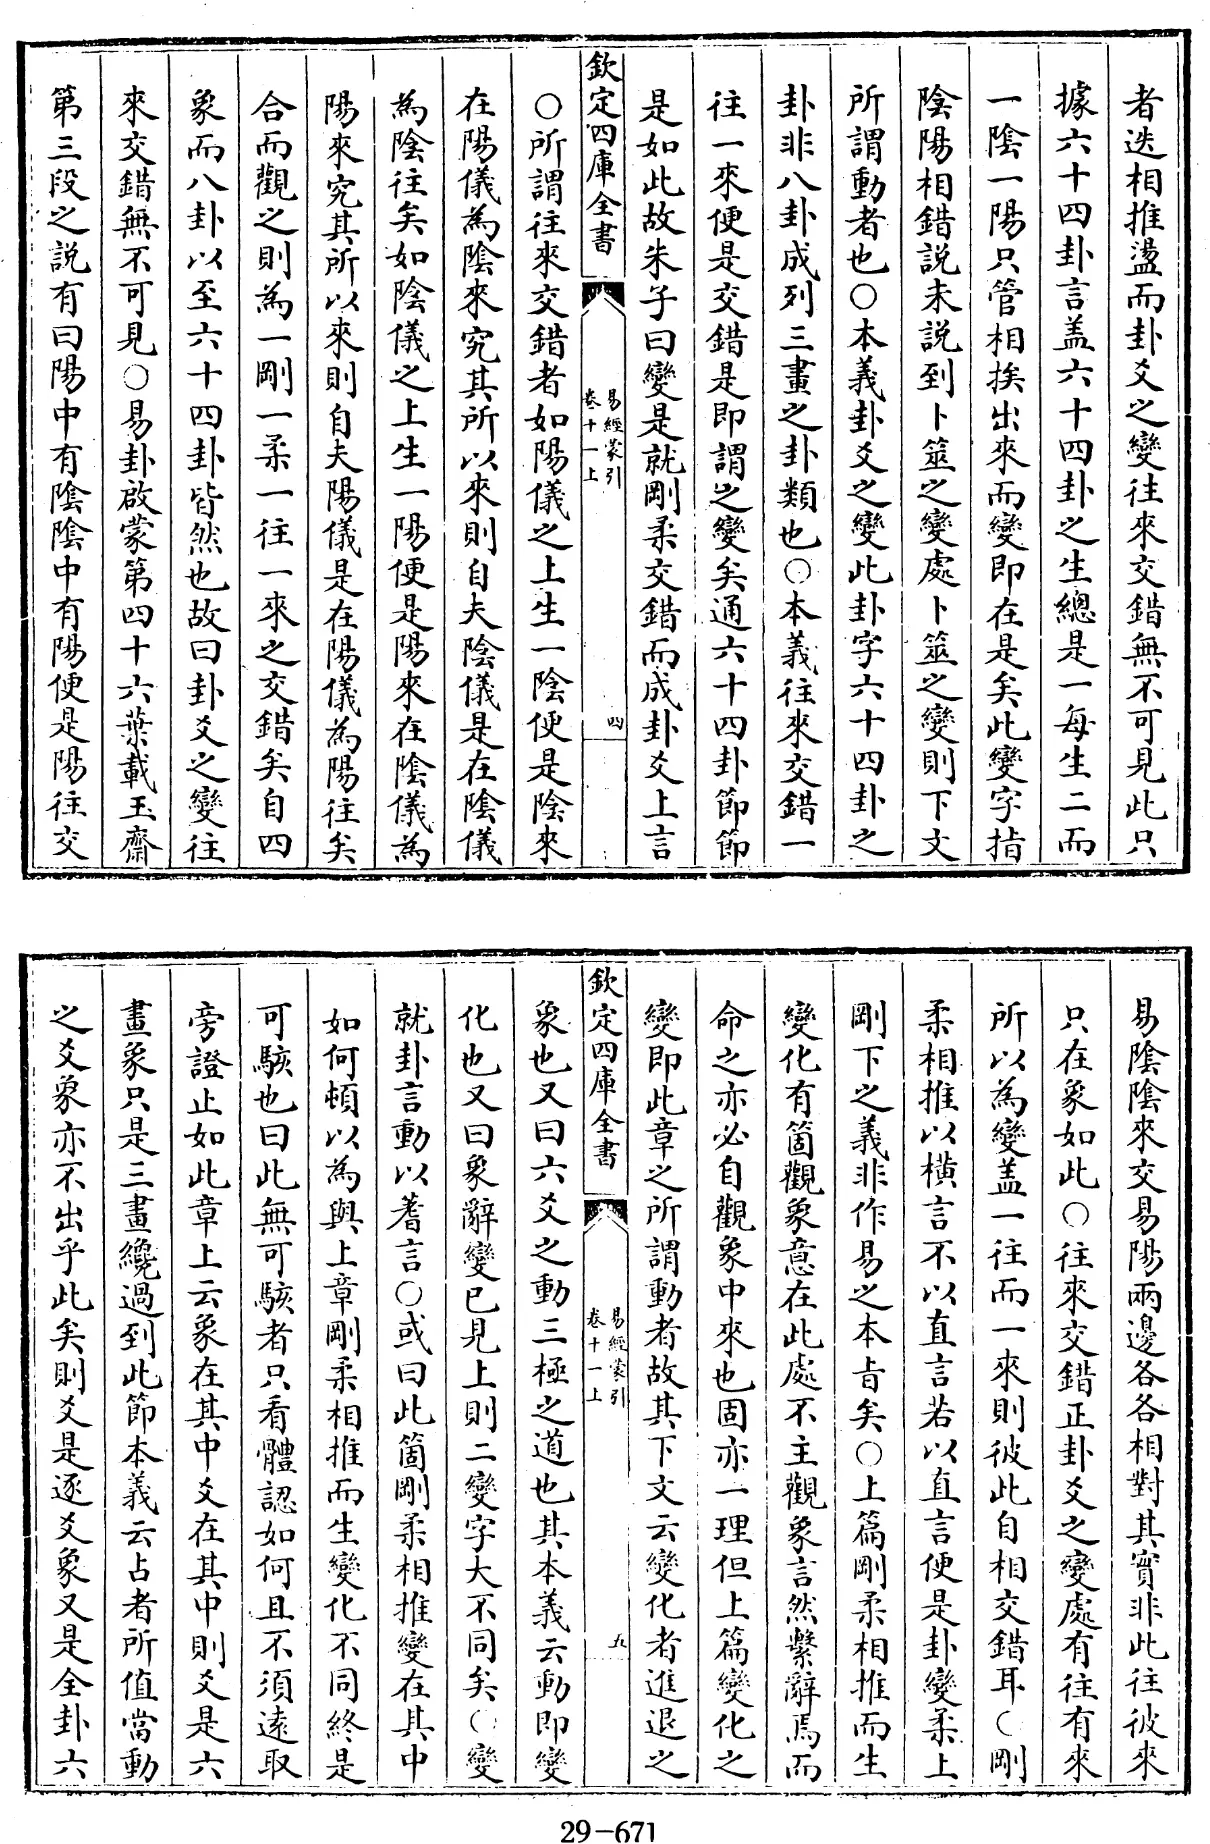 者迭相推盪而卦爻之變往來交錯無不可見此只
據六十四卦言盖六十四卦之生總是一每生二而
一陰一陽只管相挨出來而變即在是矣此變字指
陰陽相錯說未說到卜筮之變處卜筮之變則下文
所謂動者也○本義卦爻之變此卦字六十四卦之
卦非八卦成列三畫之卦類也○本義往來交錯一
往一來便是交錯是即謂之變矣通六十四卦節節
是如此故朱子曰變是就剛柔交錯而成卦爻上言
欽定四庫全書
易經蒙引
卷十一上
四
○所謂往來交錯者如陽儀之上生一陰便是陰來
在陽儀為陰來究其所以來則自夫陰儀是在陰儀
為陰往矣如陰儀之上生一陽便是陽來在陰儀為
陽來究其所以來則自夫陽儀是在陽儀為陽往矣
合而觀之則為一剛一柔一往一來之交錯矣自四
象而八卦以至六十四卦皆然也故曰卦爻之變往
來交錯無不可見○易卦啟蒙第四十六葉載玉齋
第三段之説有曰陽中有陰陰中有陽便是陽往交
易陰陰來交易陽兩邊各各相對其實非此往彼來
只在象如此○往來交錯正卦爻之變處有往有來
所以為變盖一往而一來則彼此自相交錯耳○剛
柔相推以橫言不以直言若以直言便是卦變柔上
剛下之義非作易之本旨矣○上篇剛柔相推而生
變化有箇觀象意在此處不主觀象言然繫辭焉而
命之亦必自觀象中來也固亦一理但上篇變化之
變即此章之所謂動者故其下文云變化者進退之
欽定四庫全書
易經蒙引
卷十一上
五
象也又曰六爻之動三極之道也其本義云動即變
化也又曰象辭變已見上則二變字大不同矣○變
就卦言動以蓍言○或曰此箇剛柔相推變在其中
如何頓以為與上章剛柔相推而生變化不同終是
可駭也曰此無可駭者只看體認如何且不須遠取
旁證止如此章上云象在其中爻在其中則爻是六
畫象只是三畫纔過到此節本義云占者所值當動
之爻象亦不出乎此矣則爻是逐爻象又是全卦六
29-671